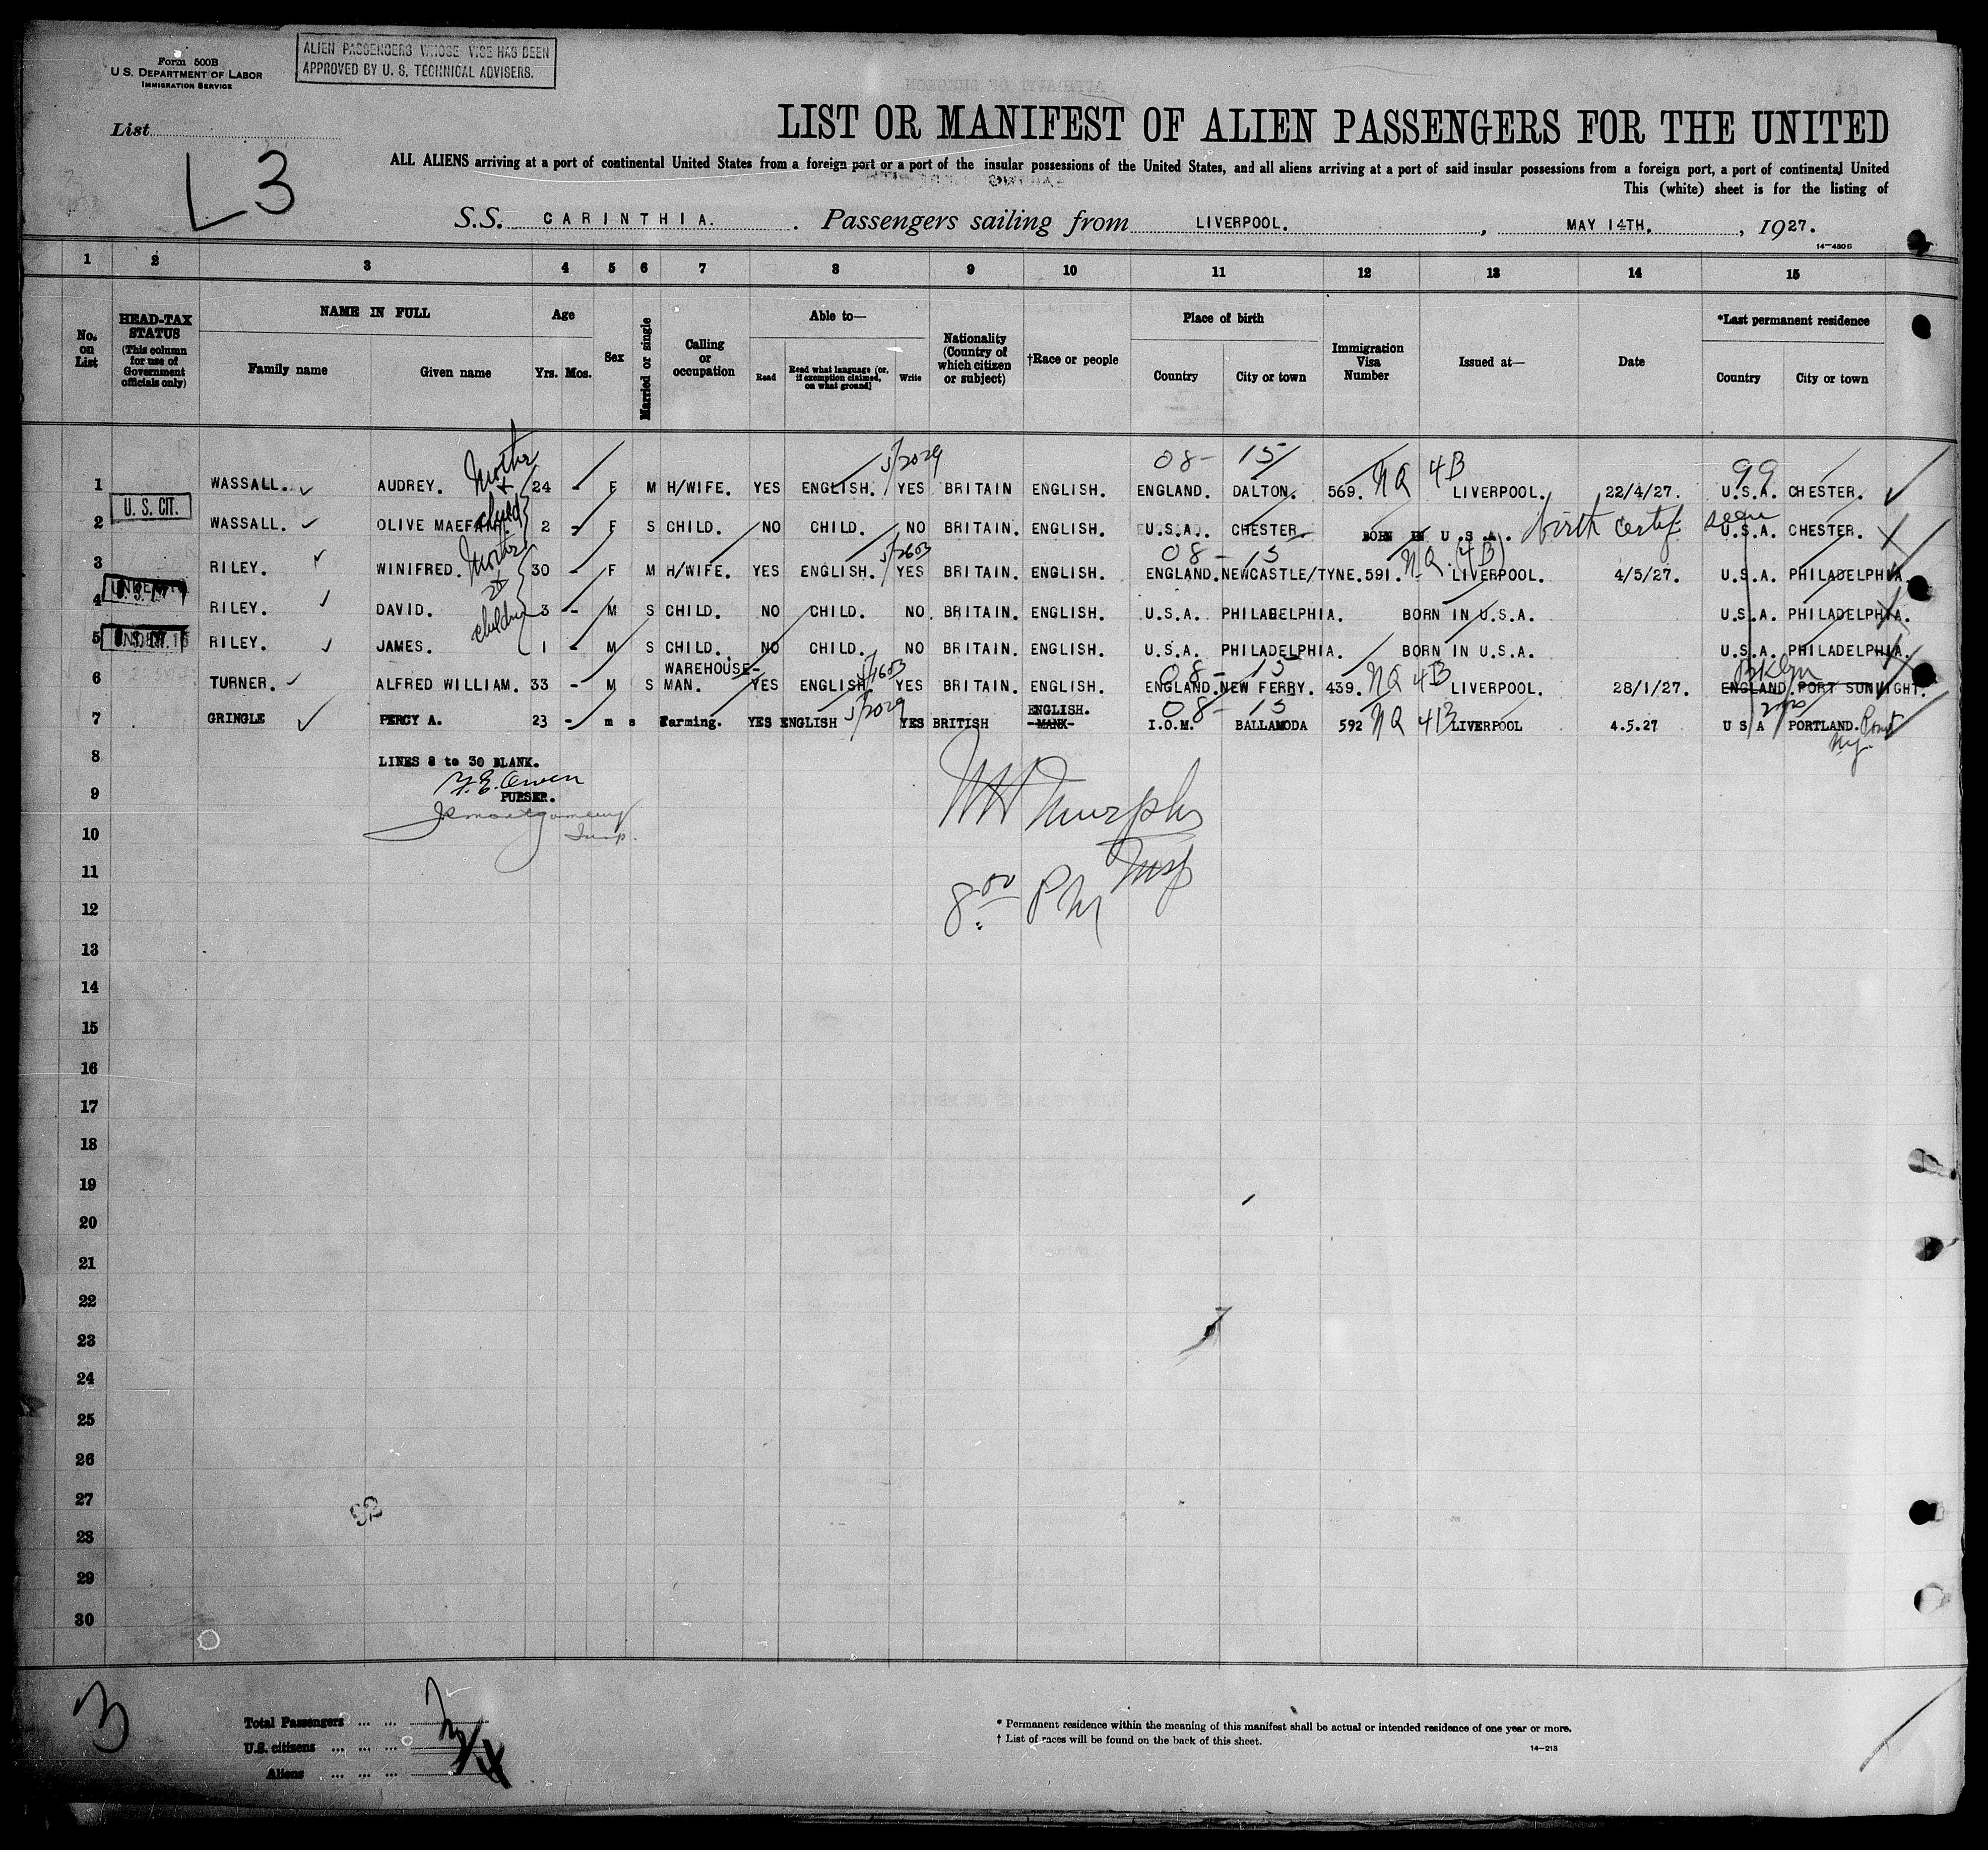 Form 500B
U. S. DEPARTMENT OF LABOR
IMMIGRATION SERVICE
ALIEN PASSENGERS WHOSE VICE HAS BEEN
APPROVED BY U. S. TECHNICAL ADVISERS.
List
L3
LIST OR MANIFEST OF ALIEN PASSENGERS FOR THE UNITED
ALL ALIENS arriving at a port of continental United States from a foreign port or a port of the insular possessions of the United States, and all aliens arriving at a port of said insular possessions from a foreign port, a port of continental United
This (white) sheet is for the listing of
S.S. CARINTHIA. Passengers sailing from LIVERPOOL. , MAY 14TH. , 1927.
14—480 B
1 2 3 4 5 6 7 8 9 10 11 12 13 14 15
No. on List
HEAD-TAX STATUS (This column for use of Government officials only)
NAME IN FULL
Family name Given name
Age
Yrs. Mos.
Sex
Married or single
Calling or occupation
Able to—
Read Read what language (or, if exemption claimed, on what ground) Write
Nationality (Country of which citizen or subject)
†Race or people
Place of birth
Country City or town
Immigration Visa Number
Issued at—
Date
*Last permanent residence
Country City or town
Mother + child
5/2029 08 - 15 NQ 4B 99
1 WASSALL. AUDREY. 24 - F M H/WIFE. YES ENGLISH. YES BRITAIN ENGLISH. ENGLAND. DALTON. 569. LIVERPOOL. 22/4/27. U.S.A. CHESTER.
U. S. CIT.
2 WASSALL. OLIVE MAE 2 - F S CHILD. NO CHILD. NO BRITAIN. ENGLISH. U.S.A. CHESTER. BORN IN U.S.A. birth certif seen U.S.A. CHESTER.
Mother 2 children
5/2603 08 - 15 NQ (4B)
3 RILEY. WINIFRED. 30 - F M H/WIFE. YES ENGLISH. YES BRITAIN. ENGLISH. ENGLAND. NEWCASTLE/TYNE. 591. LIVERPOOL. 4/5/27. U.S.A. PHILADELPHIA.
4 RILEY. DAVID. 3 - M S CHILD. NO CHILD. NO BRITAIN. ENGLISH. U.S.A. PHILADELPHIA. BORN IN U.S.A. U.S.A. PHILADELPHIA.
5 RILEY. JAMES. 1 - M S CHILD. NO CHILD. NO BRITAIN. ENGLISH. U.S.A. PHILADELPHIA. BORN IN U.S.A. U.S.A. PHILADELPHIA.
08 - 15 NQ 4B Bklyn
6 TURNER. ALFRED WILLIAM. 33 - M S WAREHOUSE-MAN. YES ENGLISH. YES BRITAIN. ENGLISH. ENGLAND. NEW FERRY. 439. LIVERPOOL. 28/1/27. ENGLAND. PORT SUNLIGHT.
5/2029 08 - 15 NQ 4B
7 GRINGLE PERCY A. 23 - m s Farming. YES ENGLISH YES BRITISH MANX ENGLISH. I.O.M. BALLAMODA 592 LIVERPOOL 4.5.27 U S A PORTLAND. Point
NY.
8 LINES 8 to 30 BLANK.
Y. E. Owen
9 PURSER.
J. Montgomery
10 Insp.
W H Murphy
Insp
8:00 PM
11
12
13
14
15
16
17
18
19
20
21
22
23
24
25
26
27
28
29
30
92
3
Total Passengers ... ... 7
U.S. citizens ... ... ... 3
Aliens ... ... ... 4
* Permanent residence within the meaning of this manifest shall be actual or intended residence of one year or more.
† List of races will be found on the back of this sheet.
14—213